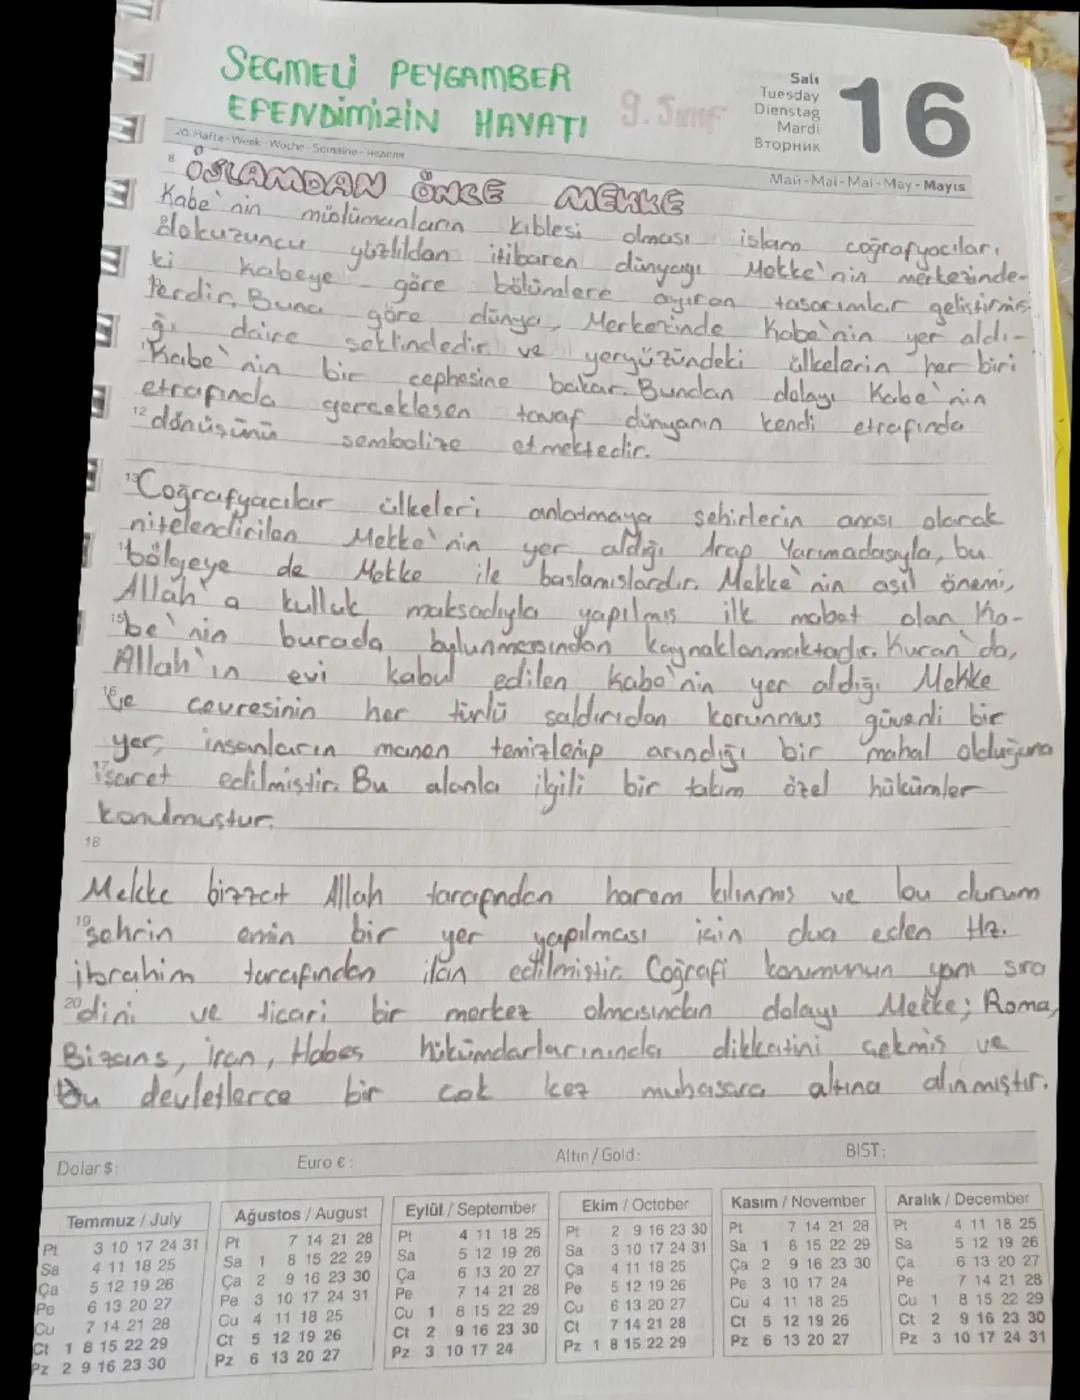 SEÇMELİ PEYGAMBER
EFENDİMİZİN HAYATI 9. Sınıf
Salı
Tuesday
Dienstag
Mardi
Вторник
16
20. Hafta - Week - Woche - Semaine - неделя
Май - Mai - Mai - May - Mayıs
8
İSLAMDAN ÖNCE MEKKE
Kabe'nin müslümanların kıblesi olması islam coğrafyacıları,
dokuzuncu yüzyıldan itibaren dünyayı Mekke'nin merkezinde-
ki Kabeye göre bölümlere ayıran tasarımlar geliştirmiş-
lerdir. Buna göre dünya, Merkezinde Kabe'nin yer aldı-
ğı daire şeklindedir ve yeryüzündeki ülkelerin her biri
Kabe'nin bir cephesine bakar. Bundan dolayı Kabe'nin
etrafında gerçekleşen tavaf dünyanın kendi etrafında
12 dönüşünü sembolize etmektedir.
13 Coğrafyacılar ülkeleri anlatmaya şehirlerin anası olarak
nitelendirilen Mekke'nin yer aldığı Arap Yarımadasıyla, bu
bölgeye de Mekke ile başlamışlardır. Mekke'nin asıl önemi,
Allah'a kulluk maksadıyla yapılmış ilk mabet olan Ka-
15 be'nin burada bulunmasından kaynaklanmaktadır. Kuran'da,
Allah'ın evi kabul edilen Kabe'nin yer aldığı Mekke
16 ve çevresinin her türlü saldırıdan korunmuş güvenli bir
yer, insanların manen temizlenip arındığı bir mahal olduğuna
17 işaret edilmiştir. Bu alanla ilgili bir takım özel hükümler
konulmuştur.
18
Mekke bizzat Allah tarafından harem kılınmış ve bu durum
19 şehrin emin bir yer yapılması için dua eden Hz.
ibrahim tarafından ilan edilmiştir. Coğrafi konumunun yanı sıra
20 dini ve ticari bir merkez olmasından dolayı Mekke; Roma,
Bizans, İran, Habeş hükümdarlarınında dikkatini çekmiş ve
bu devletlerce bir çok kez muhasara altına alınmıştır.
Dolar $: Euro €: Altın / Gold: BIST:
Temmuz / July
Pt 3 10 17 24 31
Sa 4 11 18 25
Ça 5 12 19 26
Pe 6 13 20 27
Cu 7 14 21 28
Ct 1 8 15 22 29
Pz 2 9 16 23 30
Ağustos / August
Pt 7 14 21 28
Sa 1 8 15 22 29
Ça 2 9 16 23 30
Pe 3 10 17 24 31
Cu 4 11 18 25
Ct 5 12 19 26
Pz 6 13 20 27
Eylül / September
Pt 4 11 18 25
Sa 5 12 19 26
Ça 6 13 20 27
Pe 7 14 21 28
Cu 1 8 15 22 29
Ct 2 9 16 23 30
Pz 3 10 17 24
Ekim / October
Pt 2 9 16 23 30
Sa 3 10 17 24 31
Ça 4 11 18 25
Pe 5 12 19 26
Cu 6 13 20 27
Ct 7 14 21 28
Pz 1 8 15 22 29
Kasım / November
Pt 7 14 21 28
Sa 1 8 15 22 29
Ça 2 9 16 23 30
Pe 3 10 17 24
Cu 4 11 18 25
Ct 5 12 19 26
Pz 6 13 20 27
Aralık / December
Pt 4 11 18 25
Sa 5 12 19 26
Ça 6 13 20 27
Pe 7 14 21 28
Cu 1 8 15 22 29
Ct 2 9 16 23 30
Pz 3 10 17 24 31